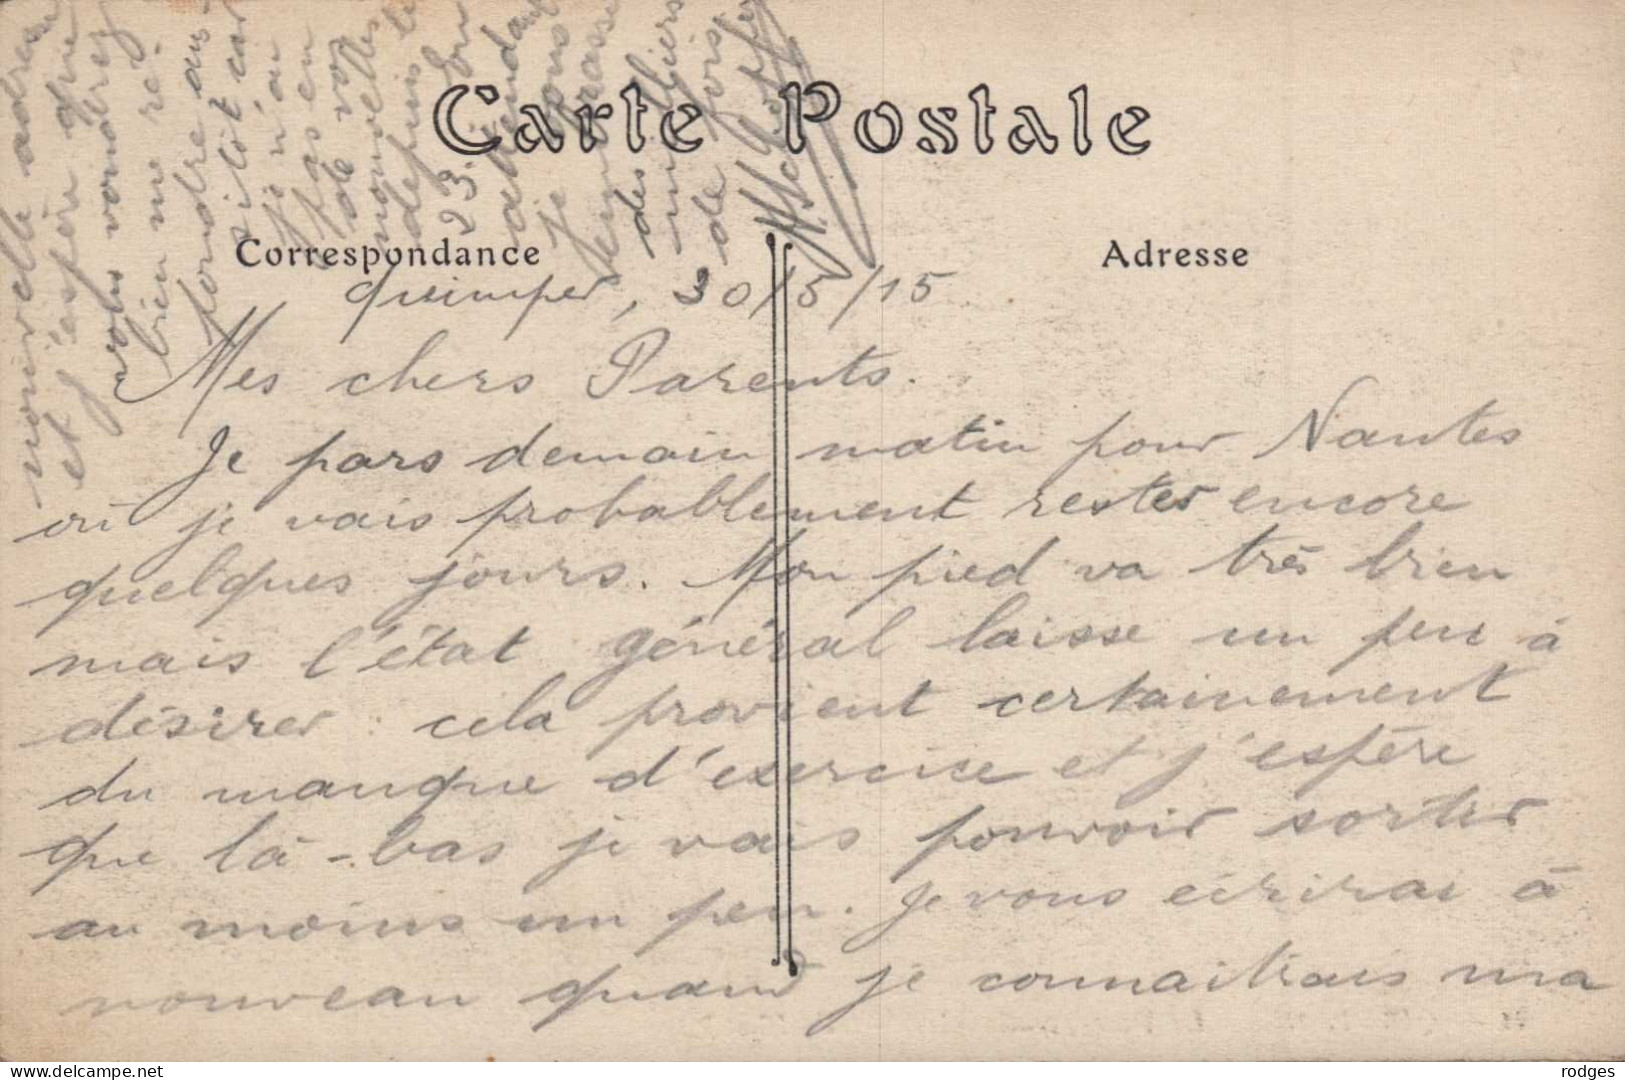 Carte Postale
Correspondance
Adresse
Quimper, 30/5/15
Mes chers Parents.
Je pars demain matin pour Nantes
où je vais probablement rester encore
quelques jours. Mon pied va très bien
mais l'état général laisse un peu à
désirer : cela provient certainement
du manque d'exercice et j'espère
que là-bas je vais pouvoir sortir
au moins un peu. Je vous écrirai à
nouveau quand je connaitrais ma
nouvelle adresse
et j'espère que
vous voudrez
bien me ré-
pondre aus-
sitôt car
je n'ai
pas eu
de vos
nouvelles
depuis le
23. En
attendant
je vous
embrasse
des milliers
de fois
rodges